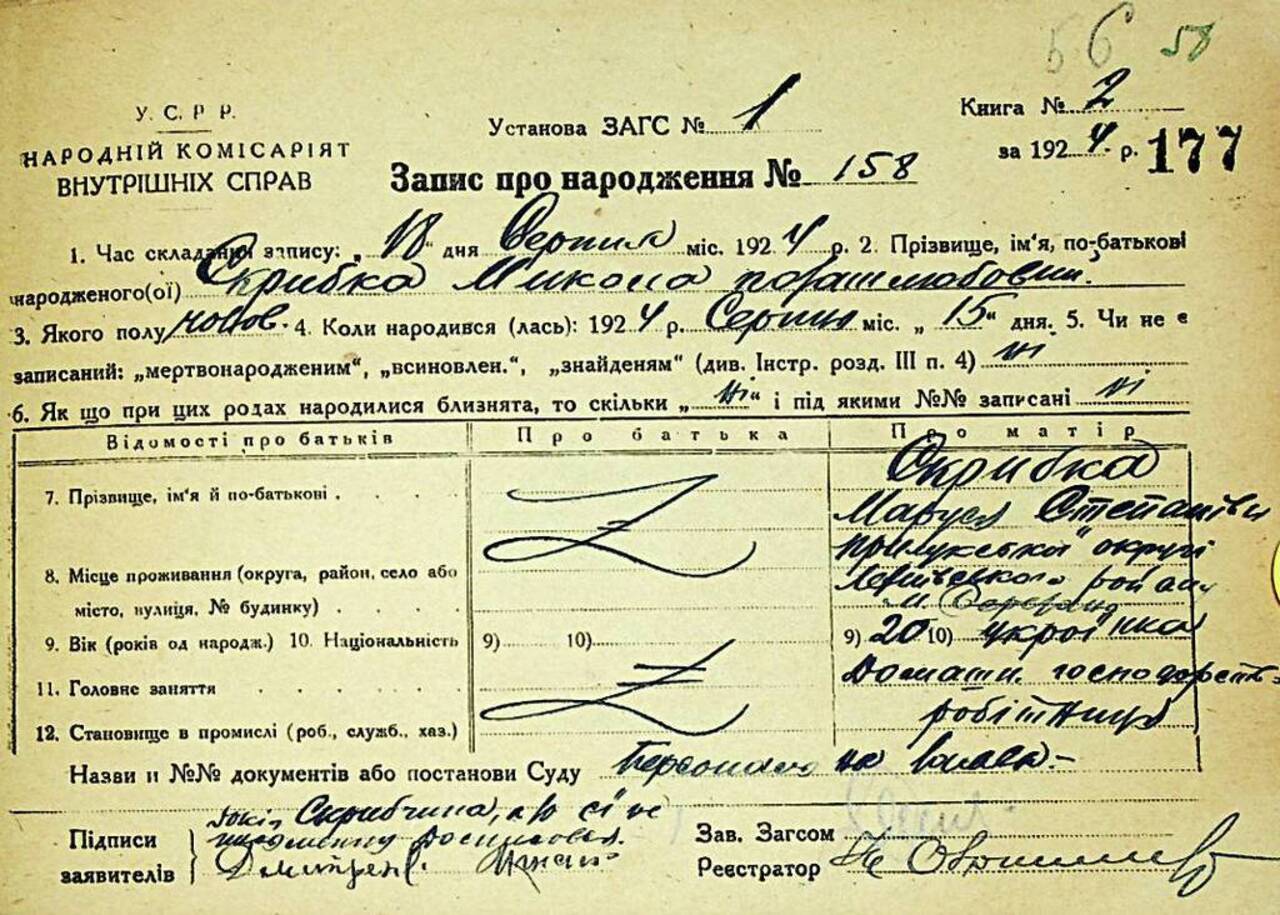 56 58
У. С. Р. Р.
НАРОДНІЙ КОМІСАРІЯТ
ВНУТРІШНІХ СПРАВ
Установа ЗАГС № 1
Книга № 2
за 1924 р. 177
Запис про народження № 158
1. Час складання запису: „18" дня Серпня міс. 1924 р. 2. Прізвище, ім'я, по-батькові
народженого(ої) Скрибка Микола позашлюбовий.
3. Якого полу чолов. 4. Коли народився (лась): 1924 р. Серпня міс. „15" дня. 5. Чи не є
записаний: „мертвонародженим", „всиновлен.", „знайденям" (див. Інстр. розд. III п. 4) ні
6. Як що при цих родах народилися близнята, то скільки „ні" і під якими №№ записані ні
Відомості про батьків Про батька Про матір
7. Прізвище, ім'я й по-батькові . . . . Скрибка
Маруся Степанівн
Прилукської округи
8. Місце проживання (округа, район, село або
місто, вулиця, № будинку) . . . . району
9. Вік (років од народж.) 10. Національність 9) 10) 9) 20 10) українка
11. Головне заняття . . . . . Домашн. господарств
12. Становище в промислі (роб., служб., хаз.) робітниця
Назви и №№ документів або постанови Суду
Скрибчина,
Підписи
заявителів
Зав. Загсом
Реєстратор